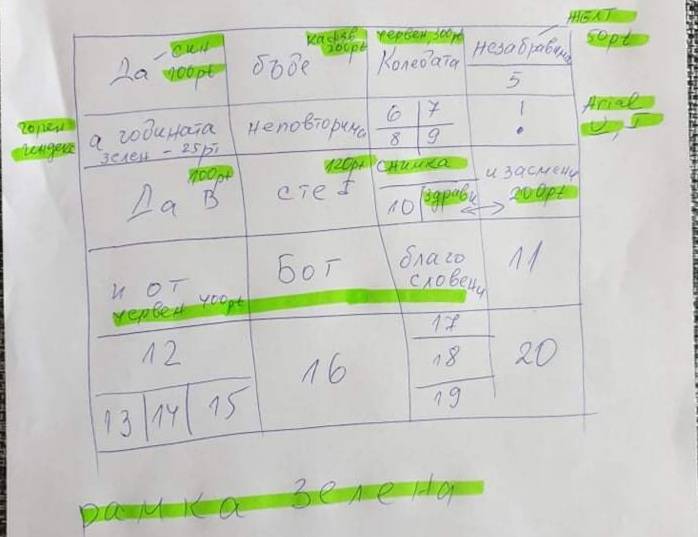 син
Да 100pt
кафяв
бъде 200pt
червен, 300pt
Колебата
жълт
незабравима 50pt
5
горен
индекс
а годината
зелен - 25pt
неповторима
6 7
8 9
!
Arial
U, I
100pt
Да В
120pt
сте I
снимка
10 здрави
и засмени
200pt
и от
червен 400pt
Бог
благо
словени
11
12
13 14 15
16
17
18
19
20
рамка зелена